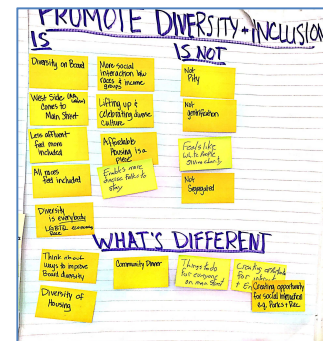 PROMOTE DIVERSITY + INCLUSION
IS
Diversity on Board
West Side
comes to
Main Street
Less affluent
feel more
included
All races
feel included
Diversity
is everybody
LGBTQ, economy
Race
More social
interaction b/w
races & income
groups
Lifting up &
celebrating diverse
culture
Affordable
Housing is a
piece
Enables more
diverse folks to
stay
IS NOT
Not
Pity
Not
gentrification
Feels like
Not
Segregated
WHAT'S DIFFERENT
Think about
ways to improve
Board diversity
Diversity of
Housing
Community Dinner
Things to do
for everyone
on main street
Creating
for
+
Creating opportunity
for social interaction
e.g. Parks + Rec